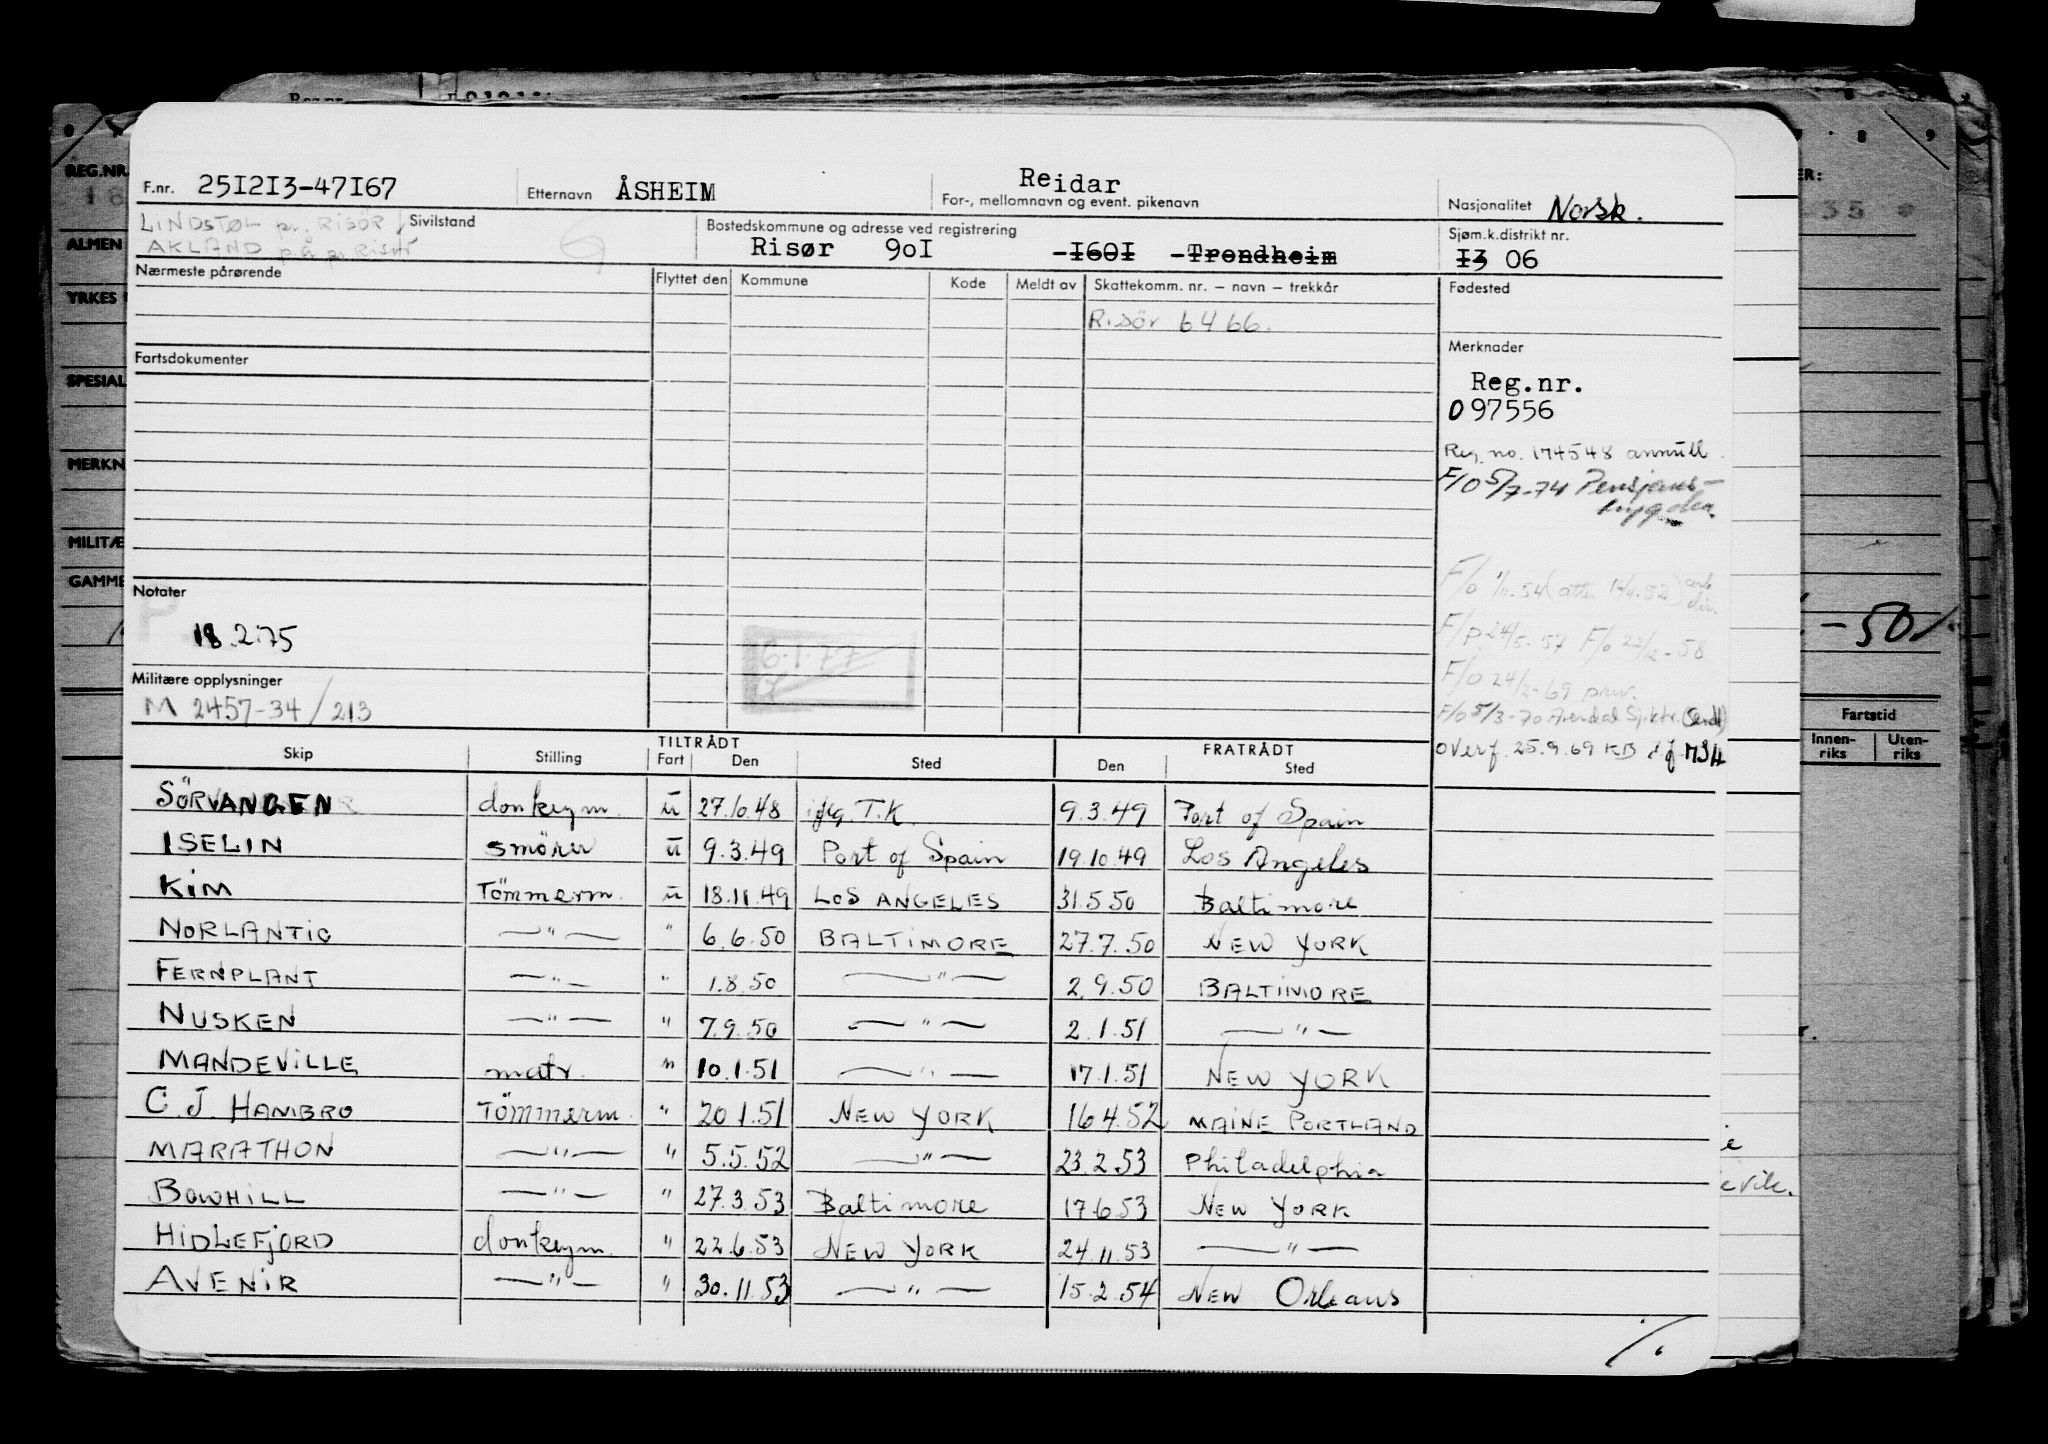 F.nr. 251213-47167 Etternavn ÅSHEIM Reidar For-, mellomnavn og event. pikenavn Nasjonalitet Norsk.
LINDSTØL pr. RISÖR Sivilstand Bostedskommune og adresse ved registrering Sjøm.k.distrikt nr.
AKLAND p.å pr Risör Risør 901 -1601 -Trondheim 13 06
Nærmeste pårørende Flyttet den Kommune Kode Meldt av Skattekomm. nr. – navn – trekkår Fødested
Risör 6466.
Fartsdokumenter Merknader
Reg.nr.
097556
Reg. no. 174548 annull.
F/O 5/7-74 Pensjons-
trygden.
F/o 1/11.54 (atter 14/4.52)
Notater
F/P. 24/5-57 F/o 22/2-58
18.2.75
6.1.77
F/O 24/2-69 priv.
Militære opplysninger
M 2457-34/213
F/O 5/3-70 Arendal Sj.ktr. (Sendt)
Overf. 25.9.69 KB
TILTRÅDT FRATRÅDT
Skip Stilling Fart Den Sted Den Sted
SÖRVANGEN donkeym. u 27.10.48 T.K. 9.3.49 Port of Spain
ISELIN smörer u 9.3.49 Port of Spain 19.10.49 Los Angeles
KIM Tömmerm. u 18.11.49 LOS ANGELES 31.5.50 Baltimore
NORLANTIC —"— " 6.6.50 BALTIMORE 27.7.50 NEW YORK
FERNPLANT —"— " 1.8.50 —"— 2.9.50 BALTIMORE
NUSKEN —"— " 7.9.50 —"— 2.1.51 —"—
MANDEVILLE matr. " 10.1.51 —"— 17.1.51 NEW YORK
C. J. HAMBRO Tömmerm. " 20.1.51 NEW YORK 16.4.52 MAINE PORTLAND
MARATHON —"— " 5.5.52 —"— 23.2.53 Philadelphia
BOWHILL —"— " 27.3.53 Baltimore 17.6.53 NEW YORK
HIDLEFJORD donkeym. " 22.6.53 NEW YORK 24.11.53 —"—
AVENIR —"— " 30.11.53 —"— 15.2.54 NEW Orleans
REG.NR
ALMEN
YRKES
SPESIAL
MERKN
MILITÆ
GAMME
-50
Fartstid
Innen-riks Uten-riks